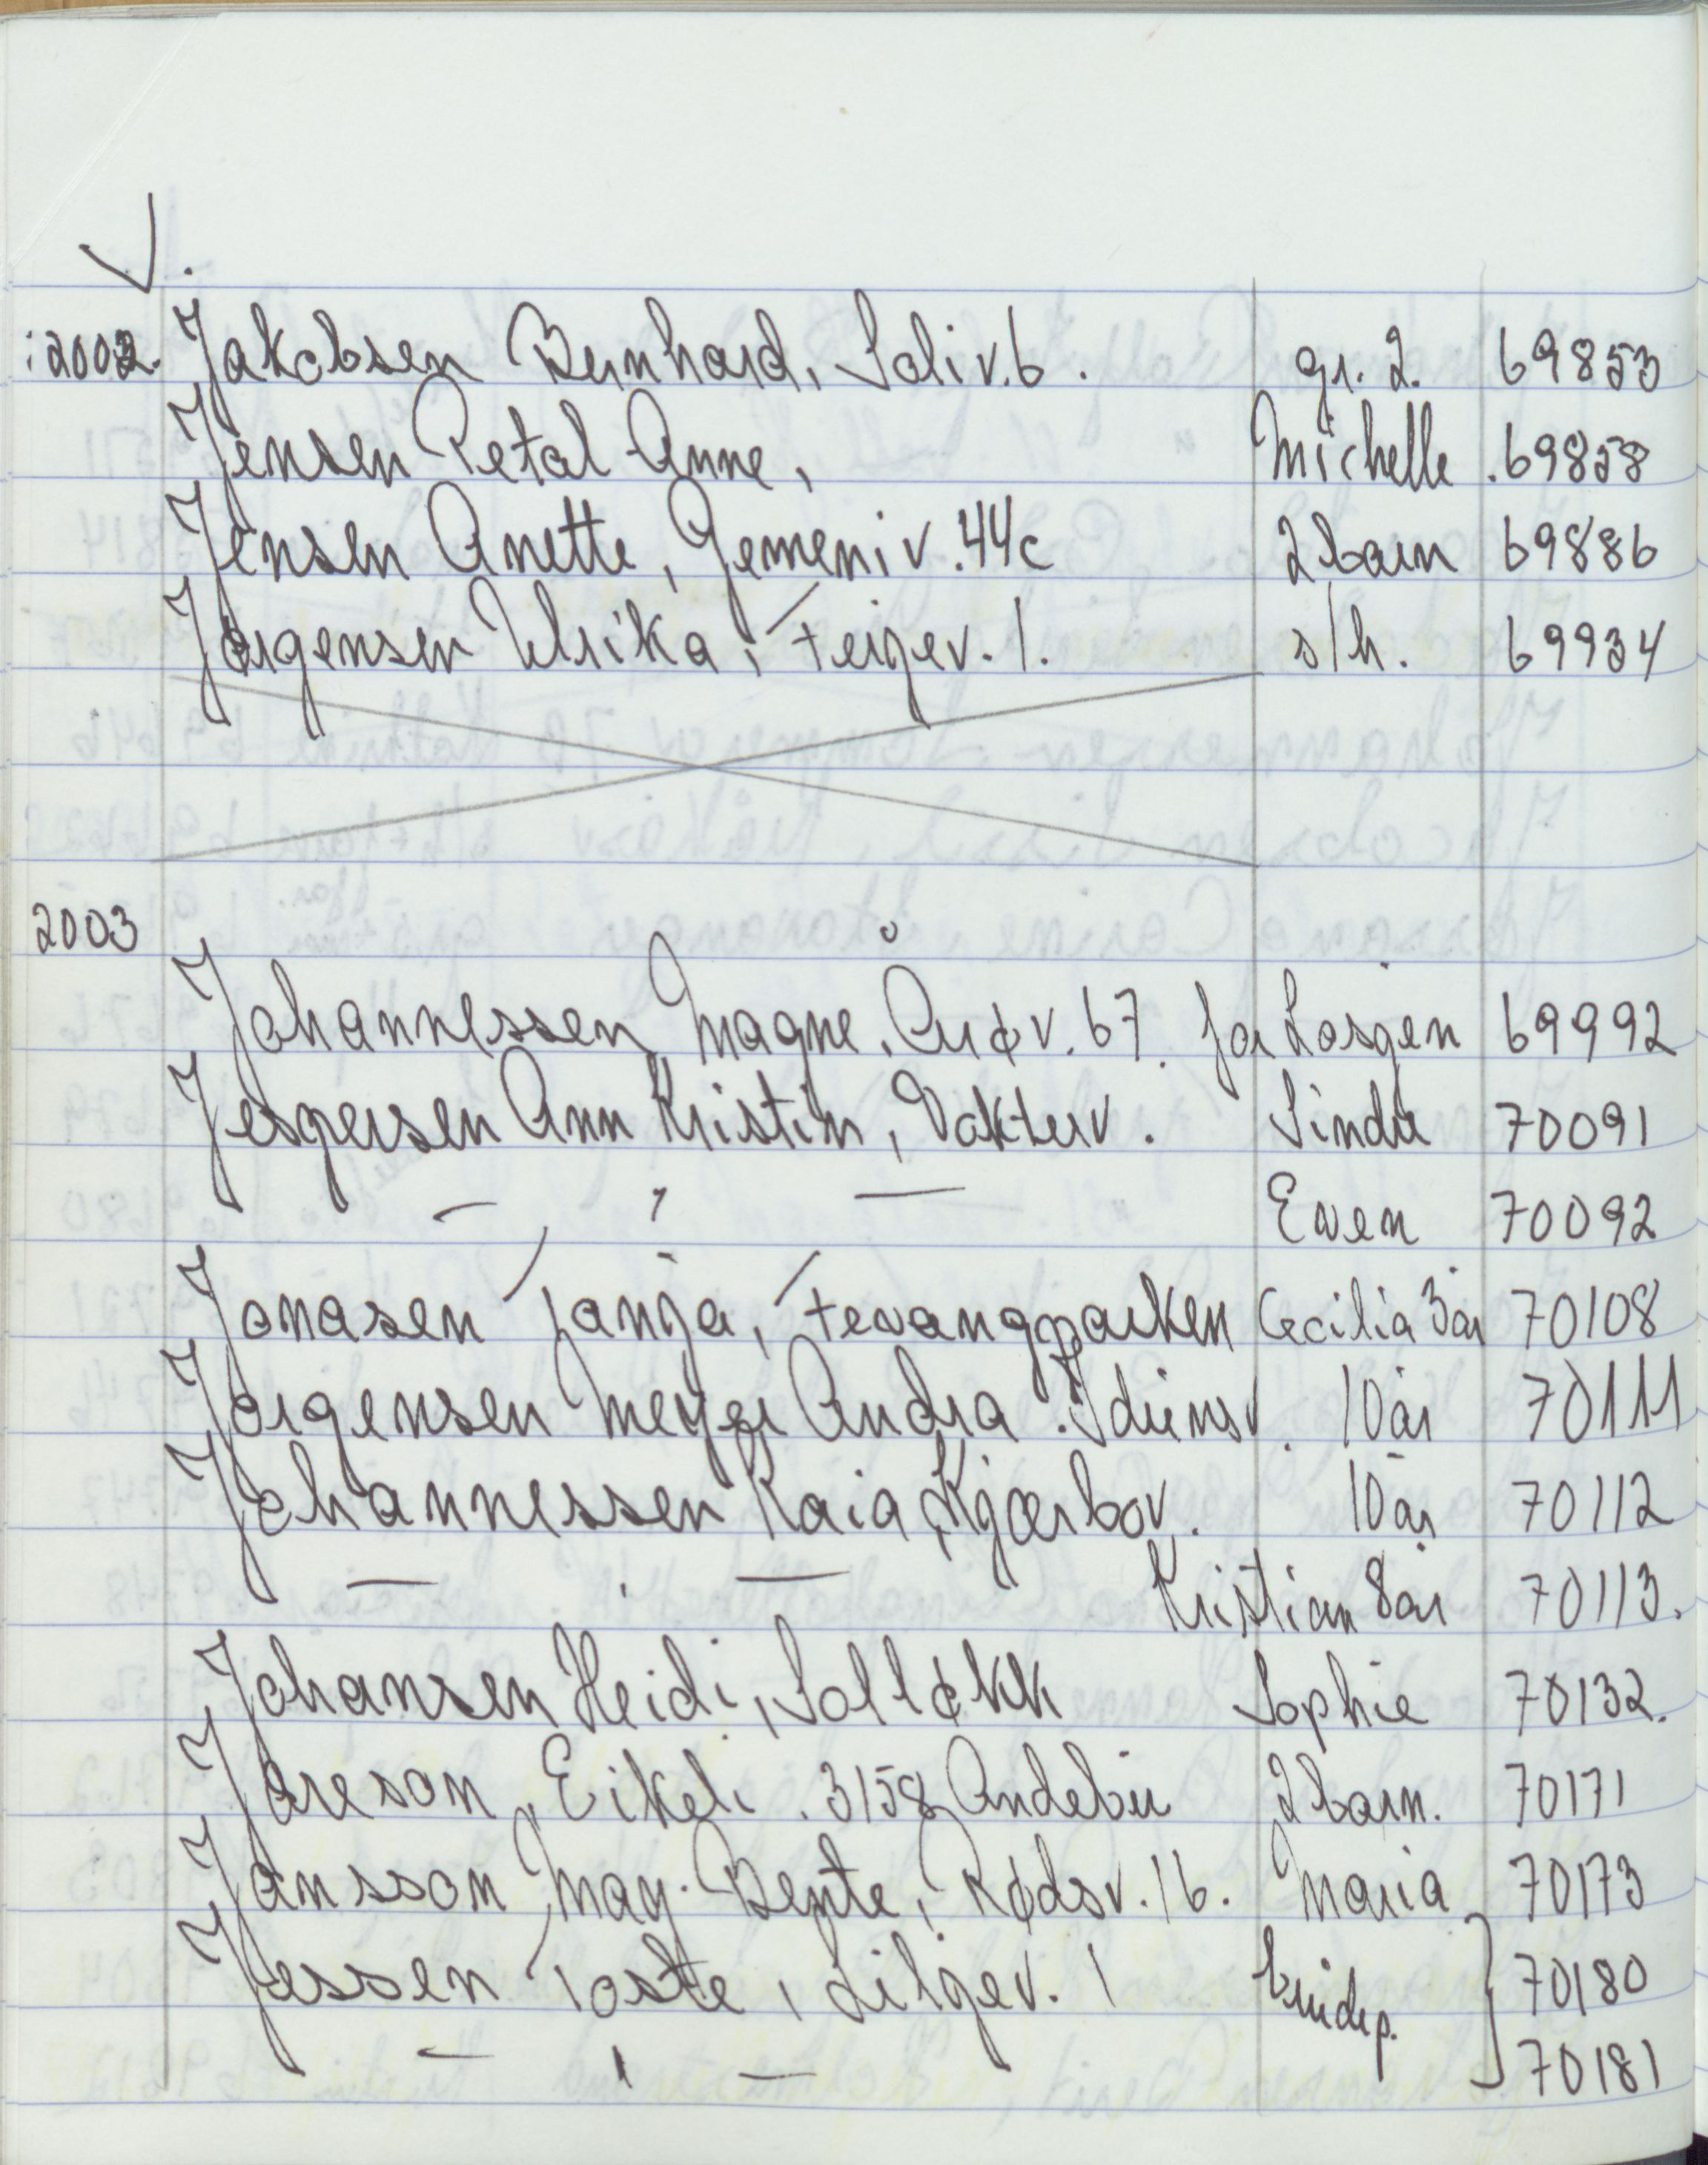 J.
:2002. Jakobsen Bernhard, Soliv. 6. gr. 2. 69853
Jensen Petal Anne, Michelle. 69858
Jensen Anette, Gemeniv. 44c 2 barn 69886
Jørgensen Ulrika, Teigev. 1. s/h. 69934
2003
Johannessen Magne, Auøv. 67. for Løsgen 69992
Jespersen Ann Kristin, Vokterv. Sindre 70091
— , — Even 70092
Jonasen Tanja, Tevangparken Cecilia 3år 70108
Jørgensen Meyer Andra. Idunsv. 10år 70111
Johannessen Kaia, Kjærbov. 10år 70112
— , — Kristian 8år 70113.
Johansen Heidi, Solløkk Sophie 70132.
Joreson, Eikeli. 3158 Andebu 2 barn. 70171
Jansson May-Bente, Rødsv. 16. Maria 70173
Jessen Toste, Liljev. 1 brudep. 70180
— , — 70181